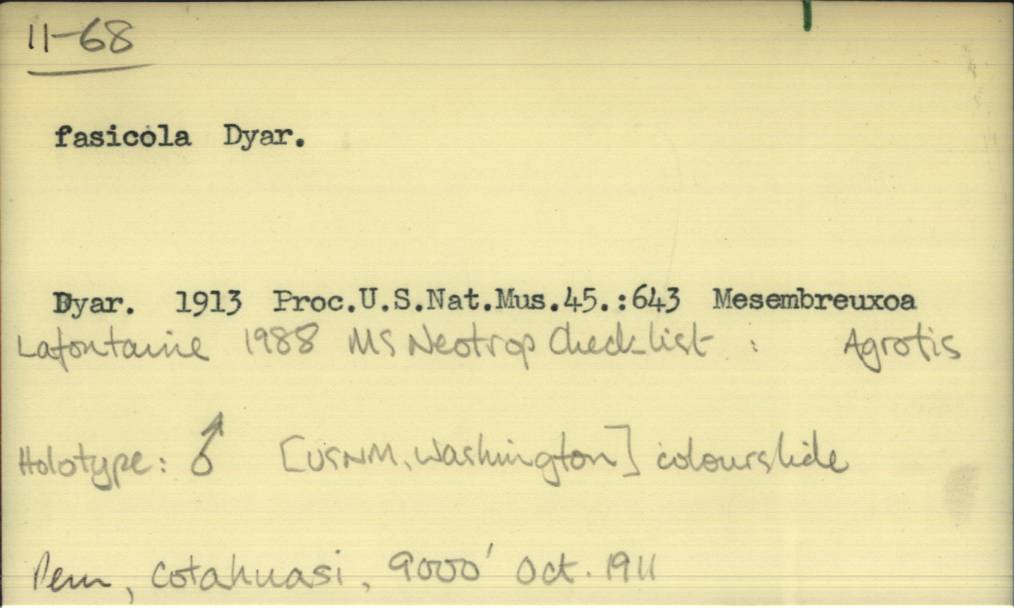 11-68
fasicola Dyar.
Dyar. 1913 Proc.U.S.Nat.Mus.45.:643 Mesembreuxoa
Lafontaine 1988 MS Neotrop Checklist : Agrotis
Holotype: ♂ [USNM, Washington] colourslide
Peru, Cotahuasi, 9000' Oct. 1911